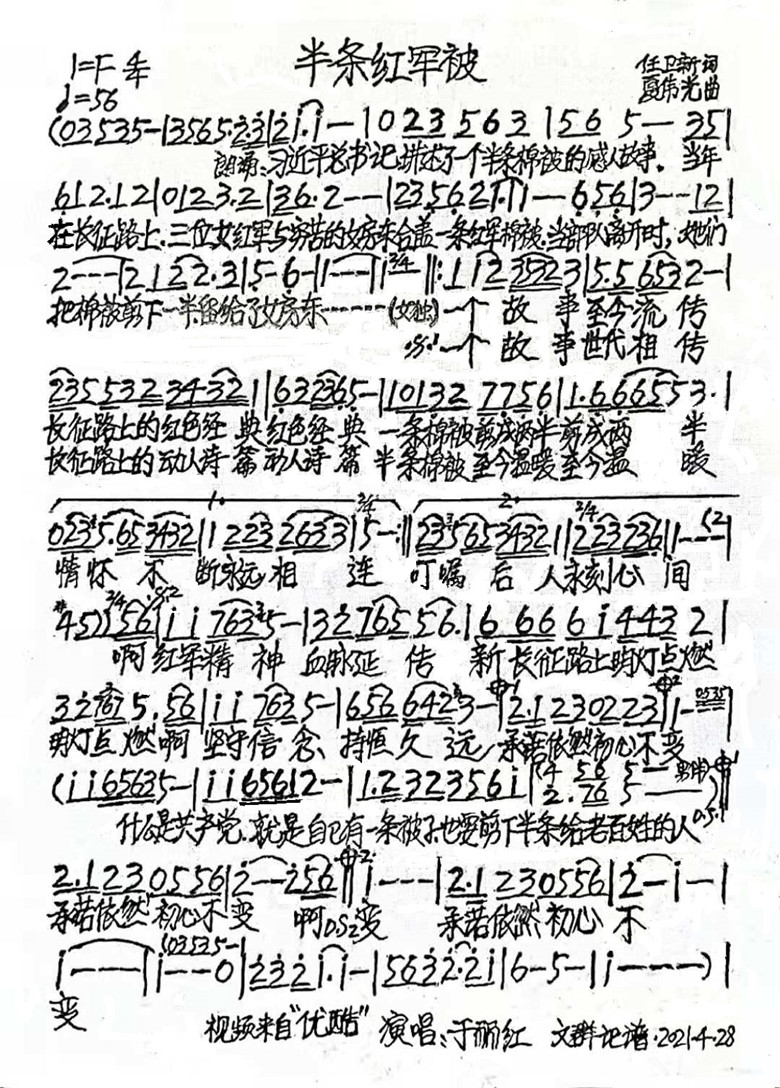 半条红军被
1=F 4/4
♩=56
任卫新词
夏伟光曲
(03535-|3565·23|2 1·1—|0 23 563|56 5—35|
朗诵:习近平总书记讲述了一个半条棉被的感人故事。当年
612·12|0123·2|36·2--|23562|1·11—656|3--12|
在长征路上,三位女红军与穷苦的女房东合盖一条红军棉被,当部队离开时,她们
2---|2122·3|5-6-|1---|1 3/4 ‖:112 35323|5·56532-|
把棉被剪下一半留给了女房东………(女独)一个 故 事至今流 传
一个 故 事世代相 传
235532 34321|632365-|10132 7756|1·666553·|
长征路上的红色经 典红色经 典 一条棉被剪成两半剪成两 半
长征路上的动人诗 篇动人诗 篇 半条棉被至今温暖至今温 暖
1. 2/4 2.
0235·653432|1223 26333|5-:‖235653432|2/4 223236|1--52|
情怀 不 断永远相 连 叮嘱 后 人永刻心 间
#45)2/4 56|11 7635-|32 765 56·|6 66 61443 2|
啊 红军精 神 血脉延 传 新 长征路上明灯点燃
32765·56|11 7635-|656 6423-|2·1230223|1-0535|
明灯点 燃啊 坚守信 念 持恒久 远 承诺依然初心不变
(1165635-|1165612-|1·2323561|(4 56 5—
2·76 5——)
什么是共产党,就是自己有一条被子也要剪下半条给老百姓的人 D.S.1
2·1230556|2—256‖1---|2·1230556|2-1-|
承诺依然初心不变 啊D.S2变 承诺依然初心 不
1----|1---0(03535-|2321·1-|56322·21|6-5-|1----)|
变
视频来自"优酷" 演唱:于丽红 文群记谱·2021·4·28